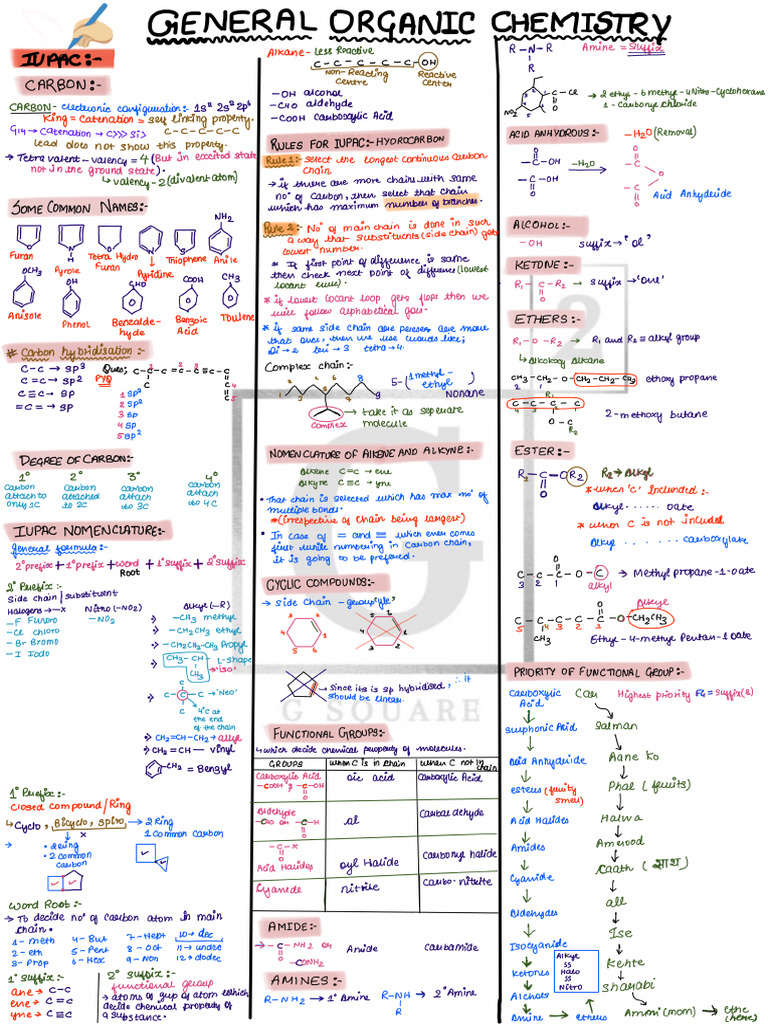 GENERAL ORGANIC CHEMISTRY
IUPAC:-
CARBON:-
CARBON- electronic configuration:- 1s² 2s² 2p⁶
King = Catenation = self linking property.
G14 → Catenation → C>>> Si> C-C-C-C-C
Lead does not show this property.
→ Tetra valent - valency = 4 (But in excited state
not in the ground state).
↳ valency-2 (divalent atom)
SOME COMMON NAMES:-
NH₂
Furan
Pyrole
Tetra Hydro
Furan
Pyridine
Thiophene
Anile
OCH₃
OH
CHO
COOH
CH₃
Anisole
Phenol
Benzalde-
hyde
Benzoic
Acid
# Carbon hybridisation:-
C-C → sp³
C=C → sp²
C≡C → sp
=C= → sp
Ques:
PYQ
1 sp³
2 sp²
3 sp
4 sp
5 sp²
DEGREE OF CARBON:-
1° 2° 3° 4°
Carbon
attach to
only 1C
Carbon
attached
to 2C
Carbon
attach
to 3C
Carbon
attach
to 4C
IUPAC NOMENCLATURE:-
General formula:-
2°prefix + 1°prefix + word + 1°suffix + 2°suffix
Root
2° Prefix:-
Side chain / substituent
Halogens → -X
-F Fluoro
-Cl chloro
-Br Bromo
-I Iodo
Nitro (-NO2)
-NO₂
Alkyl (-R)
-CH₃ methyl
-CH₂CH₃ ethyl
-CH₂CH₂-CH₃ Propyl
CH₃-CH-
CH₃
L-shape
'iso'
'Neo'
4°C at
the end
of the chain
CH₂=CH-CH₂ → allyl
CH₂=CH- vinyl
CH₂ = Benzyl
1° Prefix:-
Closed compound/Ring
↳ Cyclo, Bicyclo, spiro
→ 2 Ring
1 Common carbon
• 2 Ring
• 2 common
carbon
Word Root:-
→ To decide no° of carbon atom in main
chain.
1- meth 4- But 7- Hept 10 → dec
2- eth 5- Pent 8- Oct 11 → undec
3- Prop 6- Hex 9- Non 12 → dodec
1° Suffix:-
ane → C-C
ene → C=C
yne → C≡C
2° suffix:-
functional group
→ atoms or gup of atom which
decide chemical property of
a substance.
Alkane- Less Reactive
C-C-C-C-C-C-OH
Non-Reacting
Centre
Reactive
Center
-OH alcohol
-CHO aldehyde
-COOH Carboxylic Acid
RULES FOR IUPAC:- HYDROCARBON
Rule 1:- Select the longest continuous carbon
chain
→ if there are more chains with same
no° of Carbon, then select that chain
which has maximum number of branches.
Rule 2:- No° of main chain is done in such
a way that substituents (side chain) get
lowest number.
* If first point of difference is same
then check next point of difference (lowest
locant rule).
* if lowest locant loop gets flops then we
will follow alphabetical goes.
Di → 2 tri → 3 tetra → 4.
Complex chain:-
1 2 3 4 5 6 7 8 9
5- (1 methyl-
ethyl) nonane
take it as seperate
molecule
NOMENCLATURE OF ALKENE AND ALKYNE:-
Alkene C=C → ene
Alkyne C≡C → yne
• That chain is selected which has max no° of
multiple bonds.
*(Irrespective of chain being largest)
• In case of = and ≡ which ever comes
first while numbering in carbon chain,
it is going to be prefered.
CYCLIC COMPOUNDS:-
→ side Chain - group 'yle'
Since its is sp hybridised, ∴ it
should be linear.
G SQUARE
FUNCTIONAL GROUPS:-
↳ which decide chemical property of molecules.
GROUPS
when C is in chain
when C not in
chain
Carboxylic Acid
-COOH
oic acid
Carboxylic Acid
Aldehyde
al
Carbal dehyde
Acid Halides
oyl Halide
Carbonyl halide
Cyanide
nitrile
Carbo-nitrile
AMIDE:-
-C-NH2 or
-CONH₂
Amide
Carbamide
AMINES:-
R-NH₂ → 1° Amine
R-NH
R
→ 2° Amine
R-N-R
R
Amine = Suffix
NO₂
Cl
→ 2 ethyl-6 methyl-4 Nitro-Cyclohexane
1-Carbonyl chloride
ACID ANHYDROUS:-
-H₂O (Removal)
-C-OH
-C-OH
-H₂O
Acid Anhydride
ALCOHOL:-
-OH suffix → 'ol'
KETONE:-
R₁-C-R₂ → suffix → 'one'
O
ETHERS:-
R₁-O-R₂ → R₁ and R₂ = alkyl group
↳ alkoxy alkane
CH₃-CH₂-O-CH₂-CH₂-CH₃ ethoxy propane
C-C-C-C
4 3 2 1
2-methoxy butane
ESTER:-
R₁-C-OR₂
O
R₂ → Alkyl
* when 'C' Included:-
Alkyl ...... oate
* when C is not included
Alkyl ....... carboxylate
C-C-C-O-C
3 2 1
alkyl
→ Methyl propane-1-oate
Alkyl
C-C-C-C-C-O-CH₂CH₃
5 4 3 2 1
CH₃
Ethyl-4-methyl Pentan-1 oate
PRIORITY OF FUNCTIONAL GROUP:-
Carboxylic
Acid
Highest priority FG = suffix(2)
Sulphonic Acid
Salman
Acid Anhydride
Aane ko
esters (fruity
smell)
Phal (fruits)
Acid Halides
Halwa
Amides
Amrood
Cyanide
Saath (साथ)
Aldehydes
all
Isocyanide
Ise
ketones
Kehte
Alcohols
Sharabi
Amine
ethers
Ammi (mom) → Ethe
(here)
Alkyl
SS
Halo
SS
Nitro